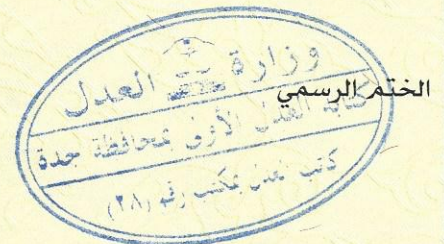 الختم الرسمي
وزارة العدل
كتابة العدل الأولى بمحافظة جدة
كاتب العدل بمكتب رقم (٢٨)